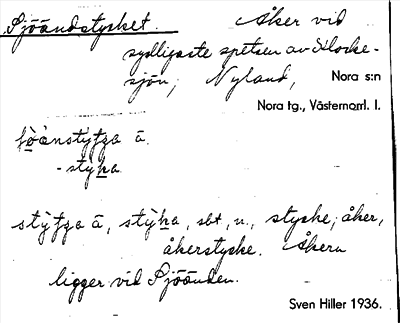 Sjöändstycket. Åker vid
sydligaste spetsen av Slocke-
sjön; Nyland, Nora s:n
Nora tg., Västernorrl. l.
- stỳḥa
ā, stỳḥa, sbt., n., stycke, åker,
åkerstycke. Åkern
ligger vid Sjöänden.
Sven Hiller 1936.